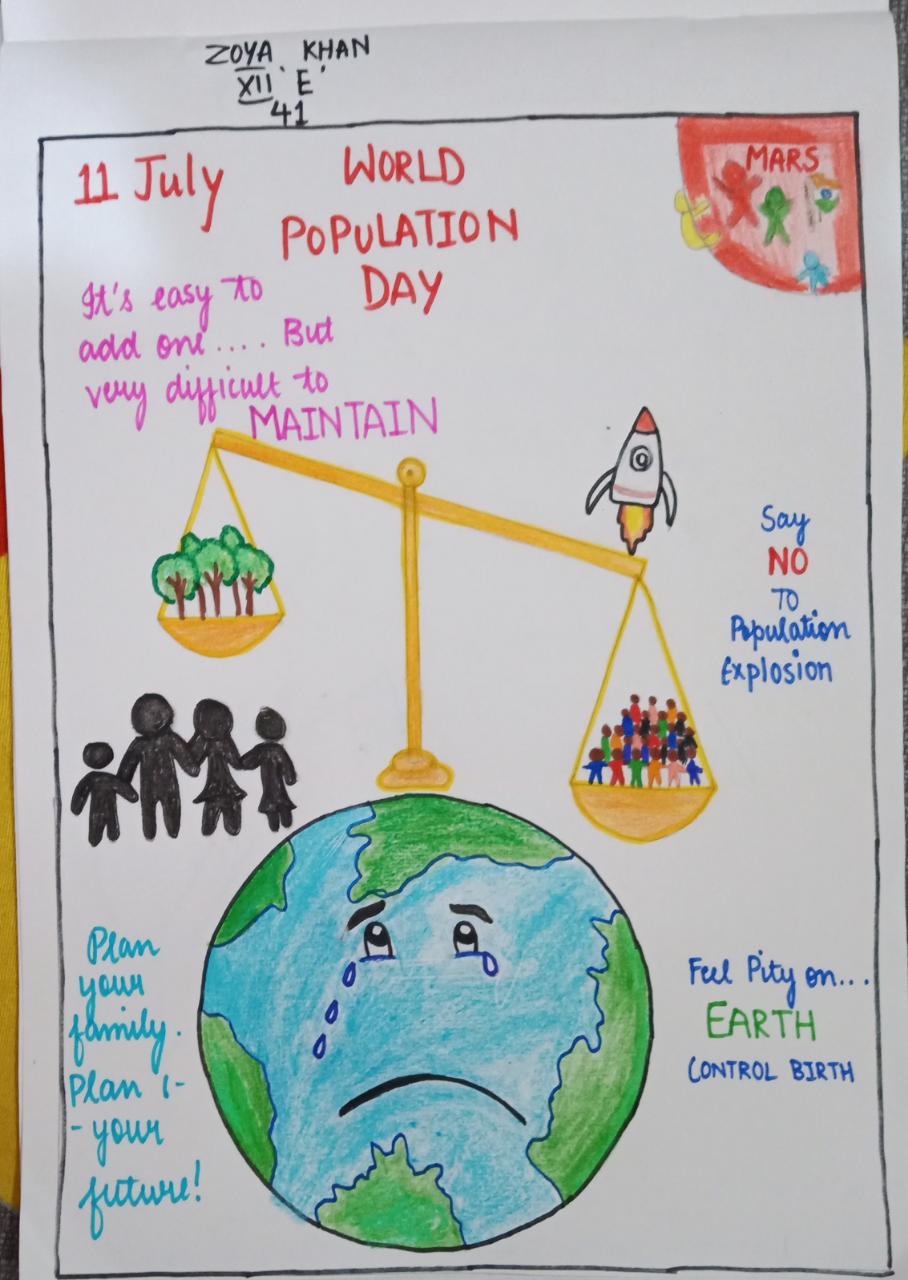 ZOYA KHAN
XII 'E'
41
11 July
WORLD
POPULATION
DAY
MARS
It's easy to
add one.... But
very difficult to
MAINTAIN
Say
NO
TO
Population
Explosion
Plan
your
family.
Plan -
- your
future!
Feel Pity on...
EARTH
CONTROL BIRTH